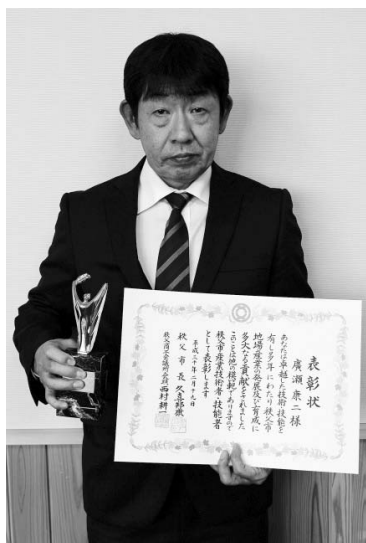 表彰状
廣瀬康二様
あなたは卓越した技術・技能を
有し多年にわたり秩父市
地場産業の発展及び育成に
多大なる貢献をされました
このことは他の模範でありますので
秩父市産業技術者・技能者
として表彰します
平成二十年二月十九日
秩父市長 久喜邦康
秩父商工会議所会頭 西村耕一